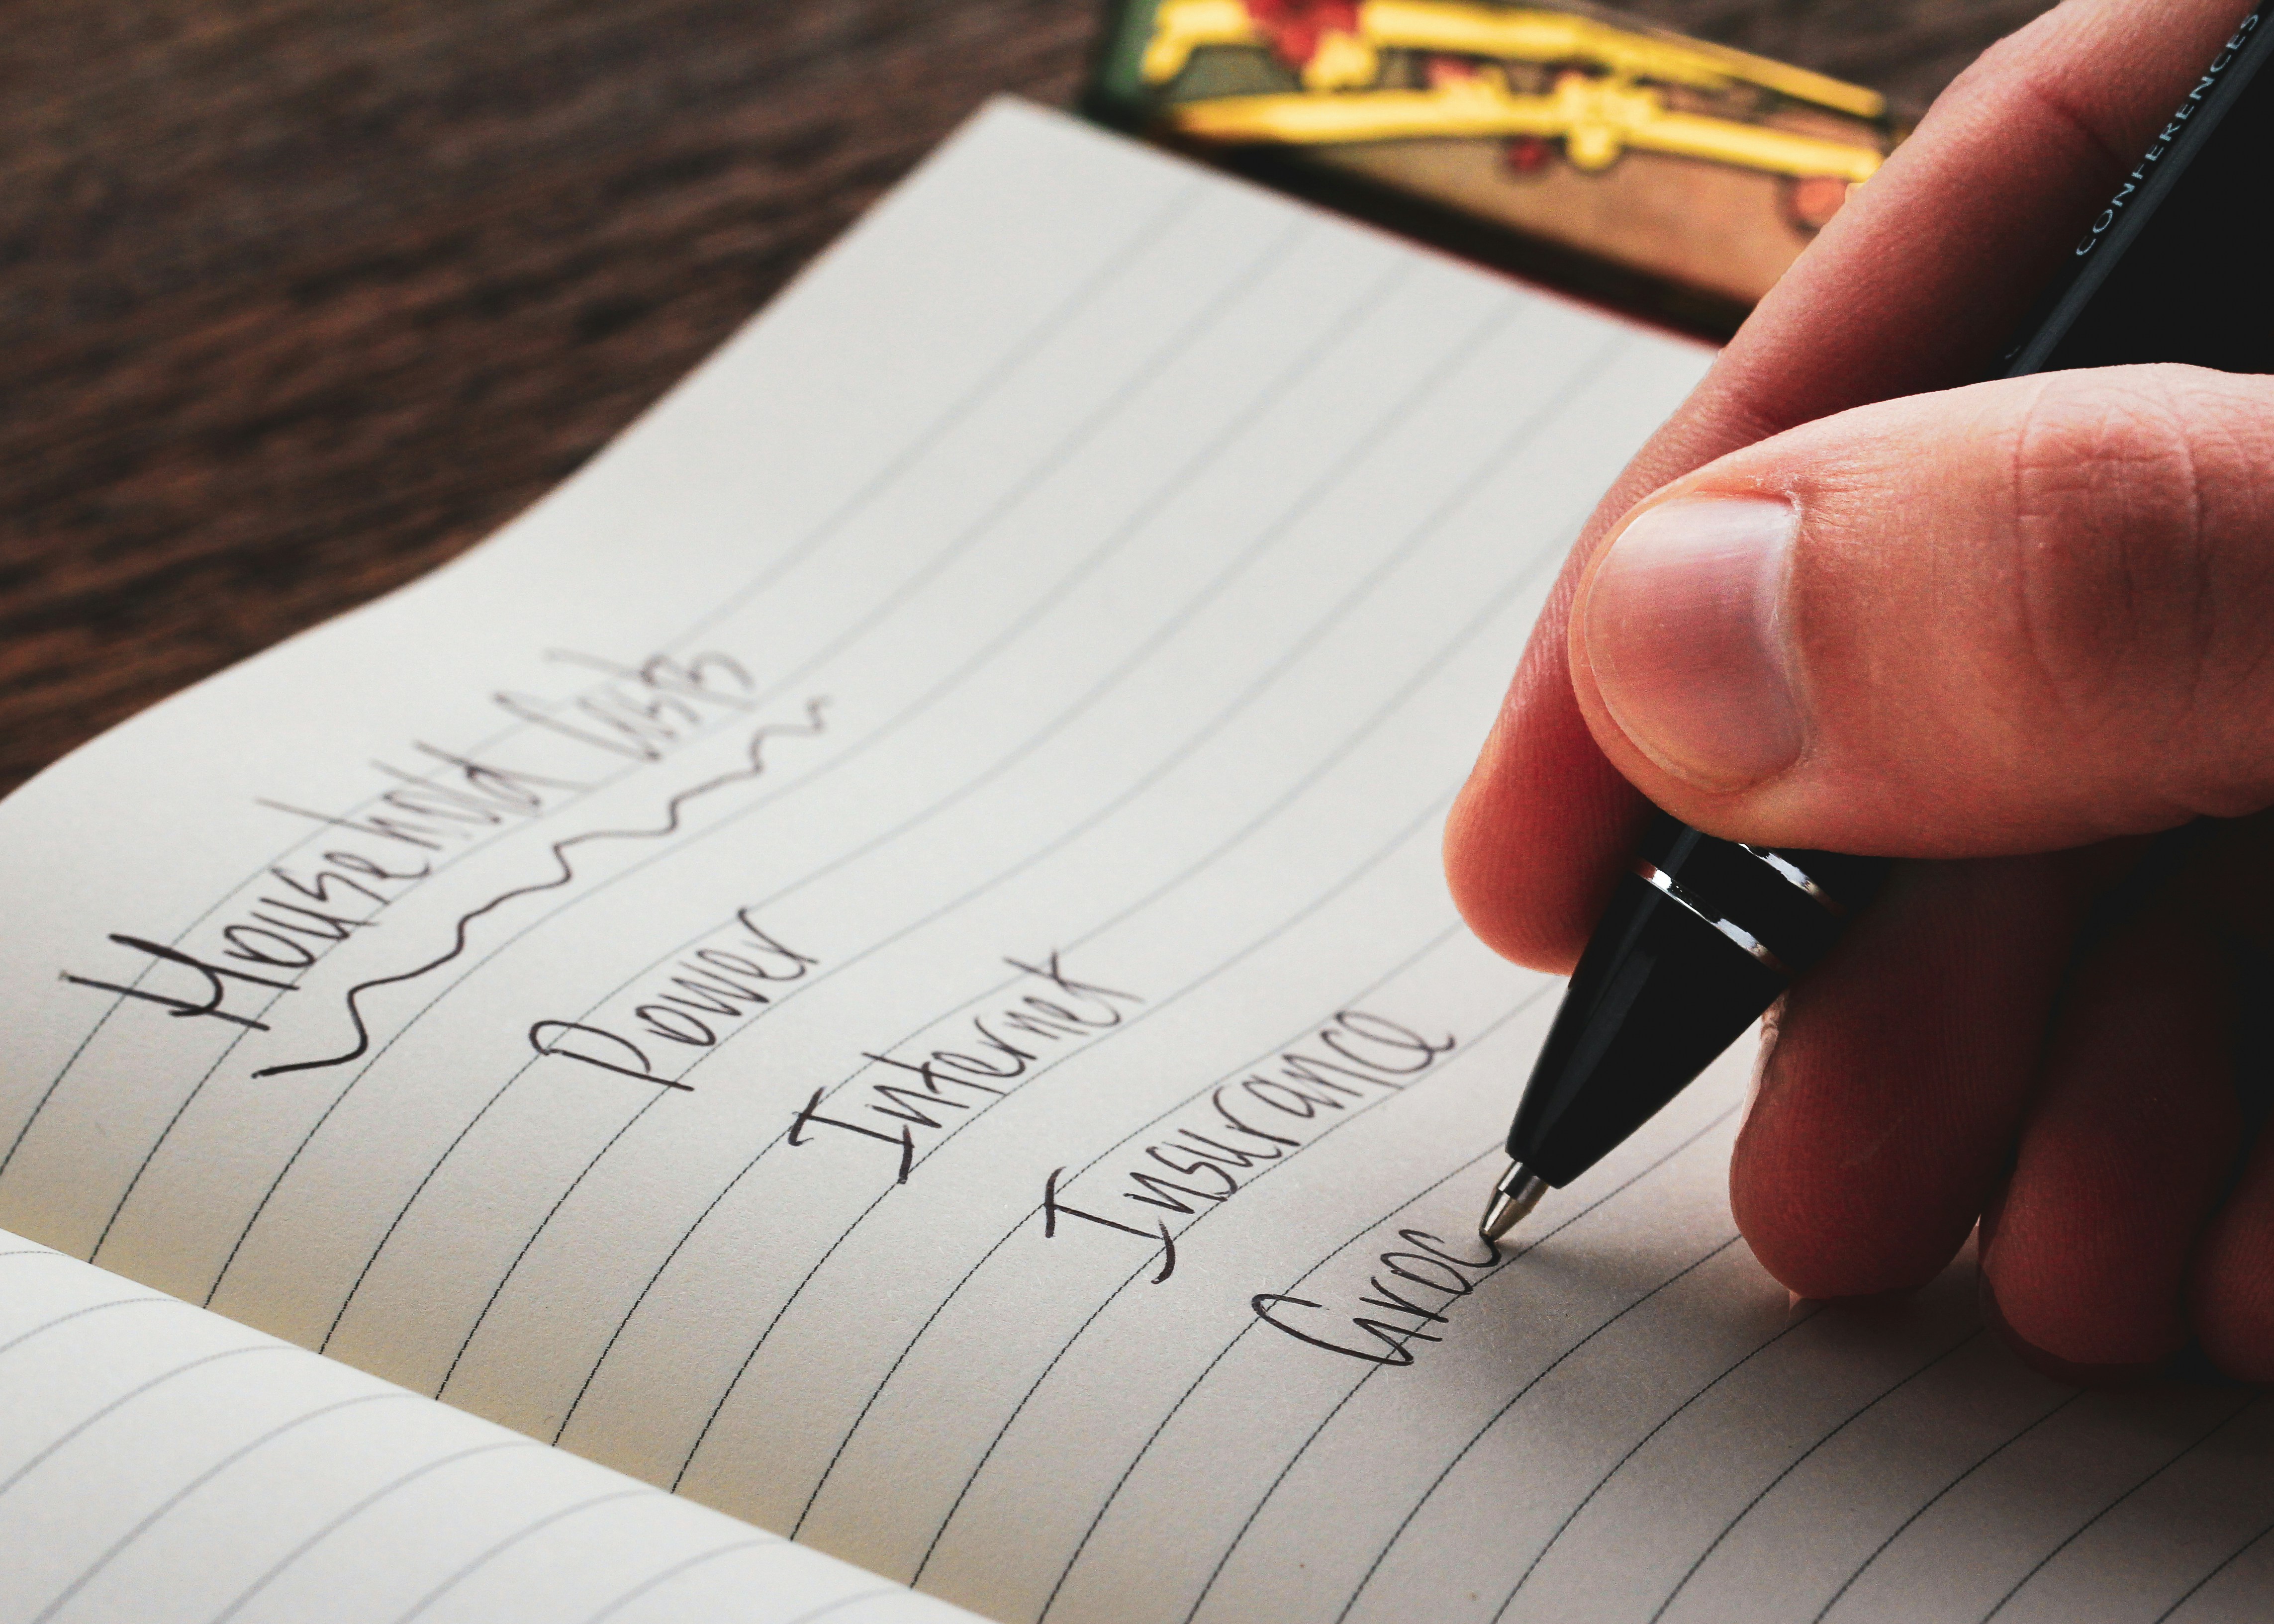 Household Costs
Power
Internet
Insurance
Groc
CONFERENCES